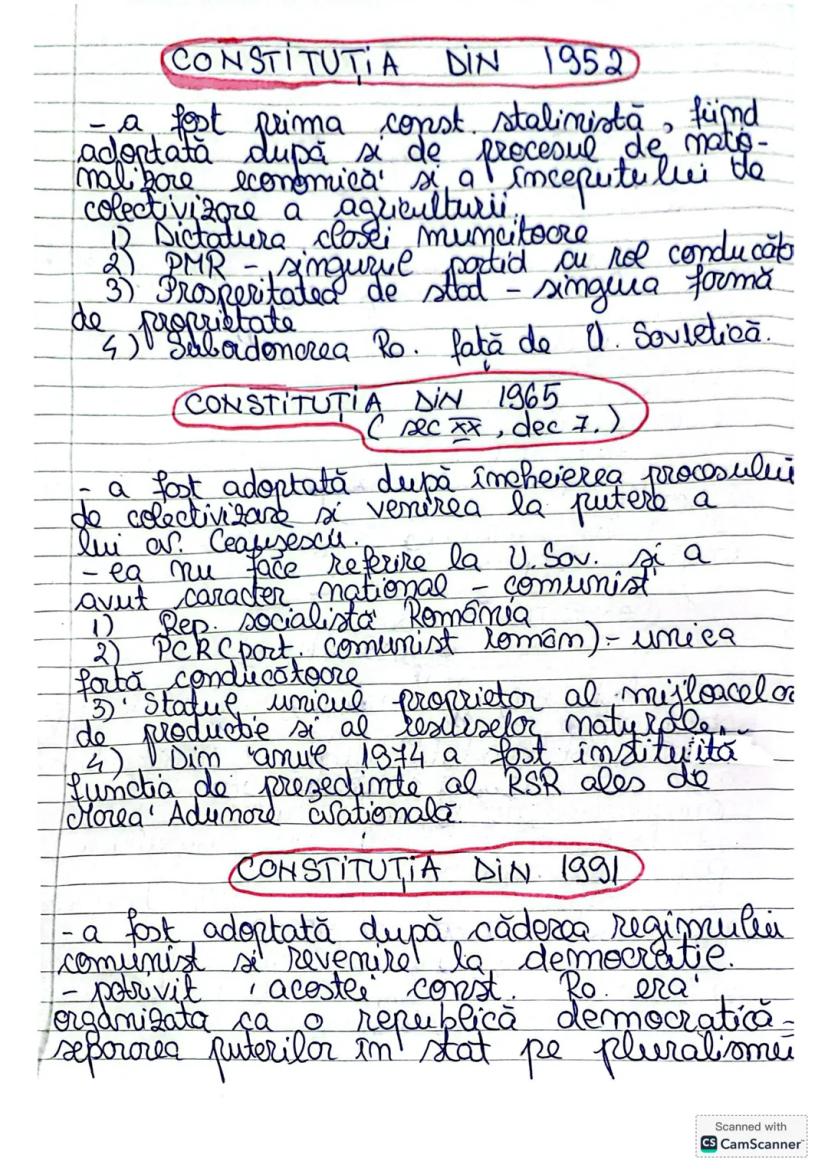 CONSTITUȚIA DIN 1952
- a fost prima const. stalinistă, fiind
adoptată după si de procesul de națio-
nalizare economică si a începutului de
colectivizare a agriculturii.
1) Dictatura clasei muncitoare
2) PMR - singurul partid cu rol conducăto
3) Prosperitatea de stat - singura formă
de proprietate
4) Subordonarea Ro. față de U. Sovietică.
CONSTITUȚIA DIN 1965
(sec XX, dec 7.)
- a fost adoptată după încheierea procesului
de colectivizare si venirea la putere a
lui N. Ceaușescu.
- ea nu face referire la U. Sov. și a
avut caracter național - comunist
1) Rep. socialistă România
2) PCR (part. comunist român) - unica
forță conducătoare
3) Statul unicul proprietor al mijloacelor
de producție si al resurselor naturale.
4) Din anul 1974 a fost instituită
funcția de președinte al RSR ales de
Marea Adunare Națională.
CONSTITUȚIA DIN 1991
- a fost adoptată după căderea regimului
comunist si revenire la democrație.
- potrivit acestei const. Ro. era
organizata ca o republică democratică -
separarea puterilor în stat pe pluralismei
Scanned with
CS CamScanner